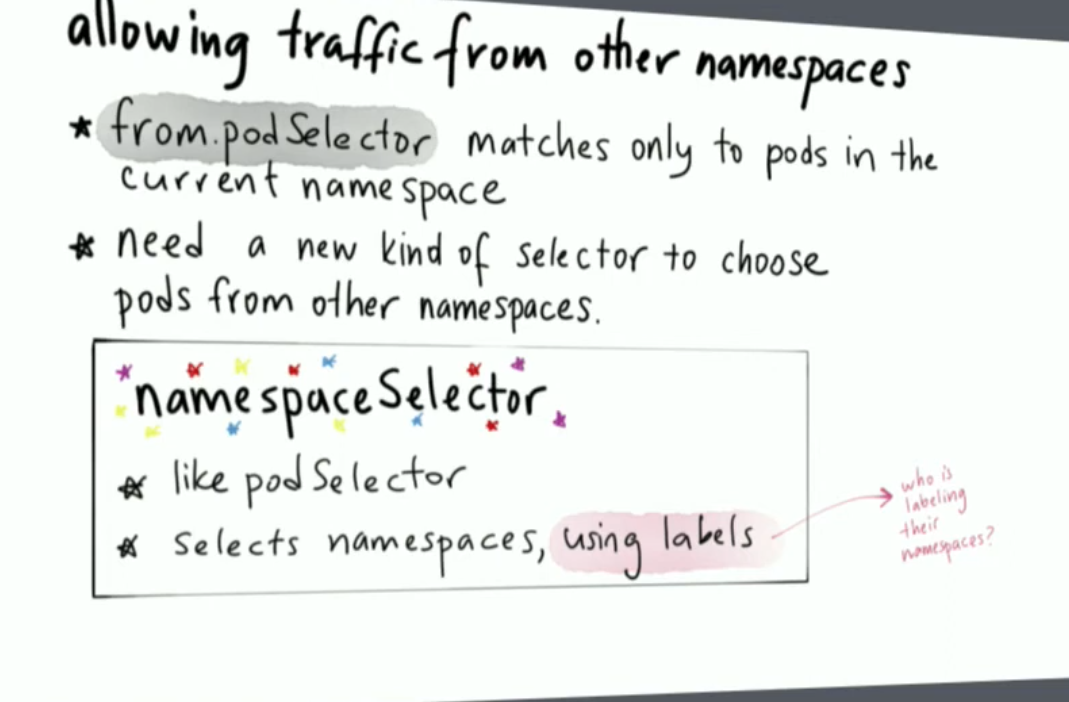 allowing traffic from other namespaces
* from.podSelector matches only to pods in the
current namespace
* need a new kind of selector to choose
pods from other namespaces.
namespaceSelector
* like podSelector
* selects namespaces, using labels
who is
labeling
their
namespaces?